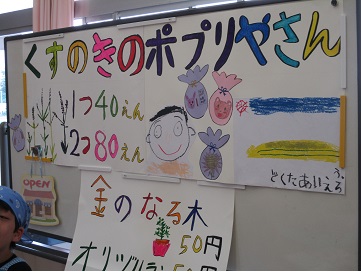 くすのきのポプリやさん
1つ40えん
2つ80えん
どくたあいえろ
OPEN
金のなる木
50円
オリヅルラン 50円